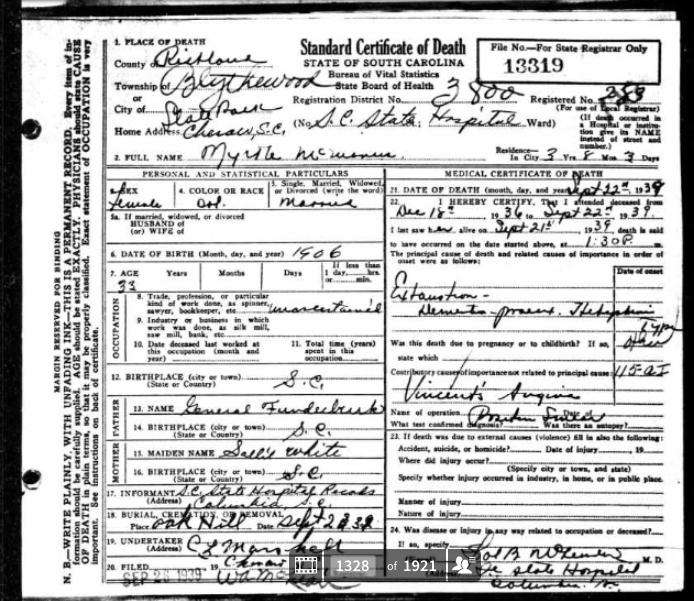 1. PLACE OF DEATH
County of Richland
Township of Blythewood
or
City of State Park
Home Address Cheraw, S.C.
Standard Certificate of Death
STATE OF SOUTH CAROLINA
Bureau of Vital Statistics
State Board of Health
Registration District No. 3800
(No. S.C. State Hospital Ward)
File No.—For State Registrar Only
13319
Registered No. 283
(For use of Local Registrar)
(If death occurred in
a Hospital or institu-
tion give its NAME
instead of street and
number.)
2. FULL NAME Myrtle
Residence—
In City 3 Yrs. 8 Mos. 3 Days
PERSONAL AND STATISTICAL PARTICULARS
3. SEX
female
4. COLOR OR RACE
Col.
5. Single, Married, Widowed,
or Divorced (write the word)
Married
5a. If married, widowed, or divorced
HUSBAND of
(or) WIFE of
6. DATE OF BIRTH (Month, day, and year) 1906
7. AGE Years Months Days
33
If less than
1 day, hrs.
or min.
OCCUPATION
8. Trade, profession, or particular
kind of work done, as spinner,
sawyer, bookkeeper, etc.
9. Industry or business in which
work was done, as silk mill,
saw mill, bank, etc.
10. Date deceased last worked at
this occupation (month and
year)
11. Total time (years)
spent in this
occupation
12. BIRTHPLACE (city or town) S.C.
(State or Country)
FATHER
13. NAME General Funderburk
14. BIRTHPLACE (city or town) S.C.
(State or Country)
MOTHER
15. MAIDEN NAME Sally White
16. BIRTHPLACE (city or town) S.C.
(State or Country)
17. INFORMANT S.C. State Hospital Records
(Address) Columbia S.C.
18. BURIAL, CREMATION, OR REMOVAL
Place Oak Hill Date Sept 23, 39
19. UNDERTAKER C L Marshall
(Address) Cheraw
20. FILED SEP 26 1939 19
MEDICAL CERTIFICATE OF DEATH
21. DATE OF DEATH (month, day, and year) Sept 22nd, 1939
22. I HEREBY CERTIFY, That I attended deceased from
Dec 18th, 1936 to Sept 22nd, 1939.
I last saw her alive on Sept 21st, 1939, death is said
to have occurred on the date stated above, at 1:30 P. m.
The principal cause of death and related causes of importance in order of
onset were as follows:
Date of onset
Exhaustion—
Dementia-praecox. Hebephrenic
type
Was this death due to pregnancy or to childbirth? If so,
state which
Contributory causes of importance not related to principal cause:
Vincent's Angina
Name of operation Date
What test confirmed diagnosis? Was there an autopsy?
23. If death was due to external causes (violence) fill in also the following:
Accident, suicide, or homicide? Date of injury, 19
Where did injury occur?
(Specify city or town, and state)
Specify whether injury occurred in industry, in home, or in public place.
Manner of injury
Nature of injury
24. Was disease or injury in any way related to occupation or deceased?
If so, specify
(Signed) M. D.
(Address) S.C. State Hospital
Columbia
MARGIN RESERVED FOR BINDING
N. B.—WRITE PLAINLY, WITH UNFADING INK—THIS IS A PERMANENT RECORD. Every item of in-
formation should be carefully supplied. AGE should be stated EXACTLY. PHYSICIANS should state CAUSE
OF DEATH in plain terms, so that it may be properly classified. Exact statement of OCCUPATION is very
important. See instructions on back of certificate.
1328 of 1921